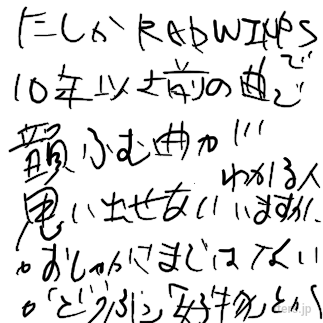 たしかRADWINPS
10年以上前の曲で
顔ふむ曲が
思い出せない わかる人いますか、
。おしゃかさまではない
。「どうぶつ」「好物」とか